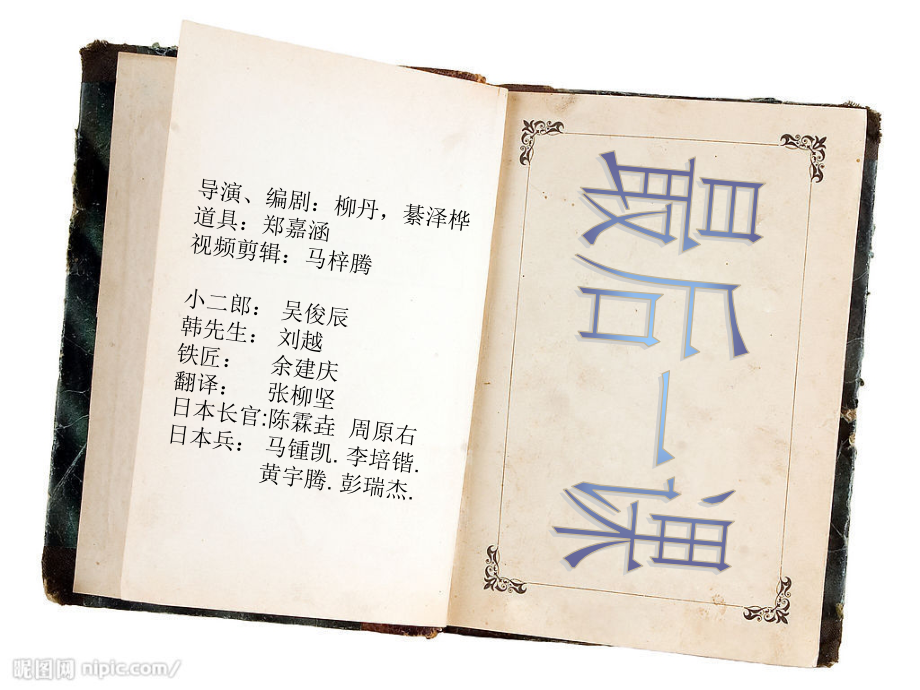 导演、编剧：柳丹，綦泽桦
道具：郑嘉涵
视频剪辑：马梓腾
小二郎： 吴俊辰
韩先生： 刘越
铁匠： 余建庆
翻译： 张柳坚
日本长官:陈霖垚 周原右
日本兵： 马锺凯. 李培锴.
黄宇腾. 彭瑞杰.
最后一课
昵图网 nipic.com/